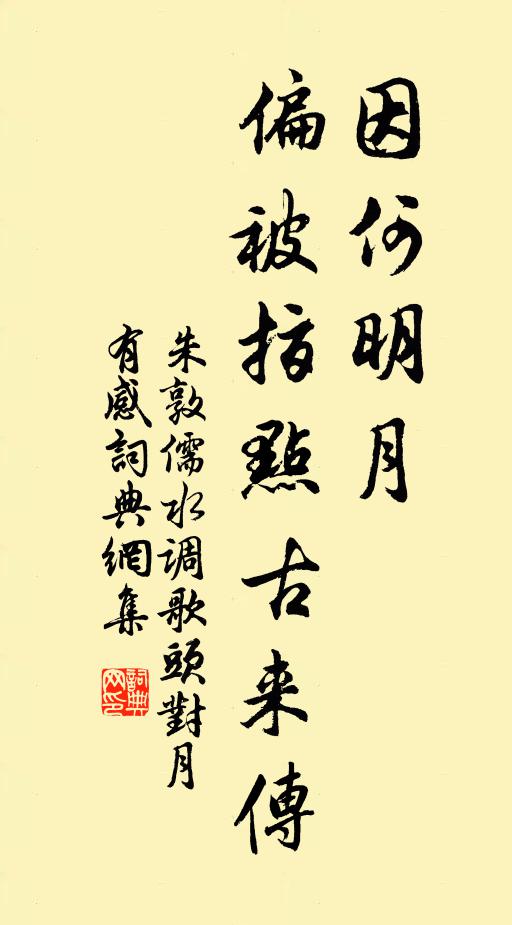 因何明月
偏被指點古来傳
朱敦儒水调歌頭對月
有感詞典網集
詞典
网印